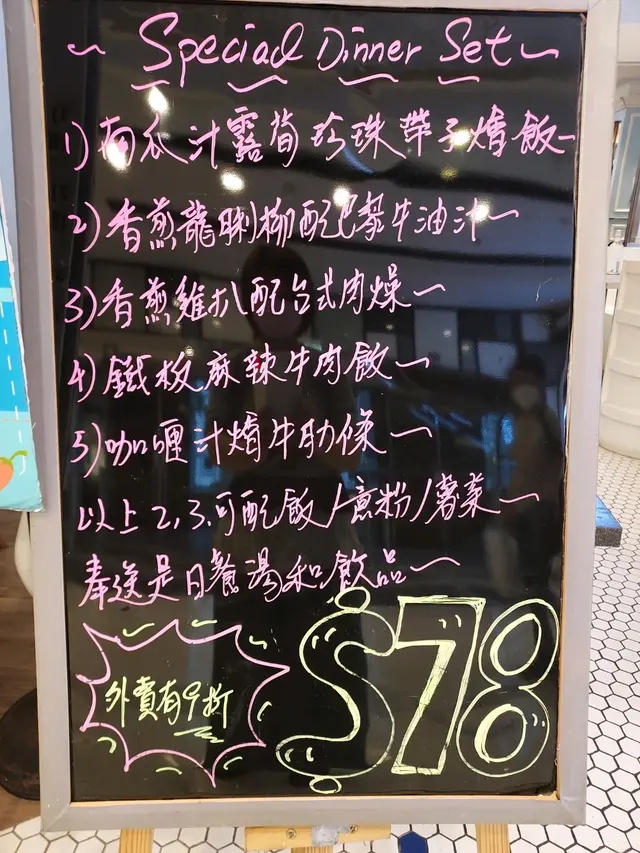 ~ Special Dinner Set ~
1) 南瓜汁露荀珍珠帶子燴飯~
2) 香煎龍脷柳配巴黎牛油汁~
3) 香煎雞扒配台式肉燥~
4) 鐵板麻辣牛肉飯~
5) 咖喱汁燴牛肋條~
以上2,3.可配飯/意粉/薯菜~
奉送是日餐湯和飲品~
外賣有9折
$78